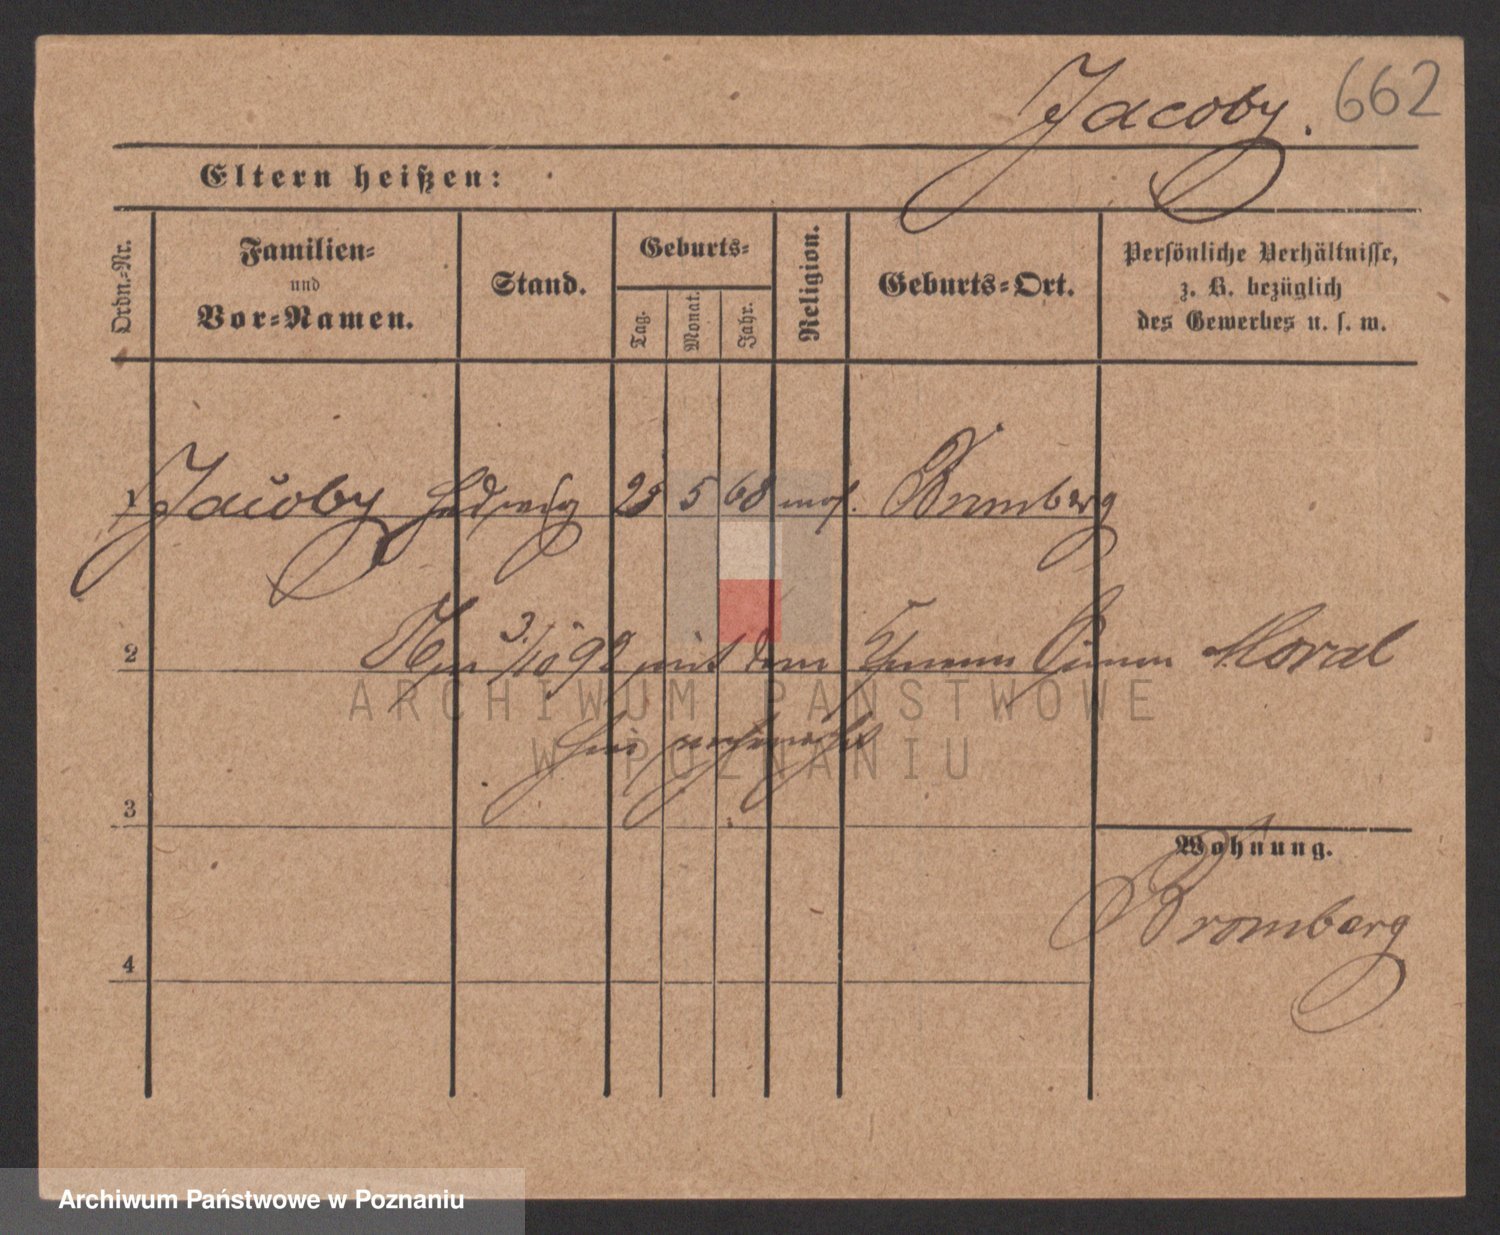 Jacoby. 662
Eltern heißen:
Ordn.-Nr.
Familien-
und
Vor-Namen.
Stand.
Geburts-
Tag.
Monat.
Jahr.
Religion.
Geburts-Ort.
Persönliche Verhältnisse,
z. B. bezüglich
des Gewerbes u. s. w.
1 Jacoby Hedwig 25 5 68 mos. Bromberg
2 Am 3/10 92 mit dem Moral
hier
3
Wohnung.
Bromberg
4
ARCHIWUM PAŃSTWOWE
W POZNANIU
Archiwum Państwowe w Poznaniu